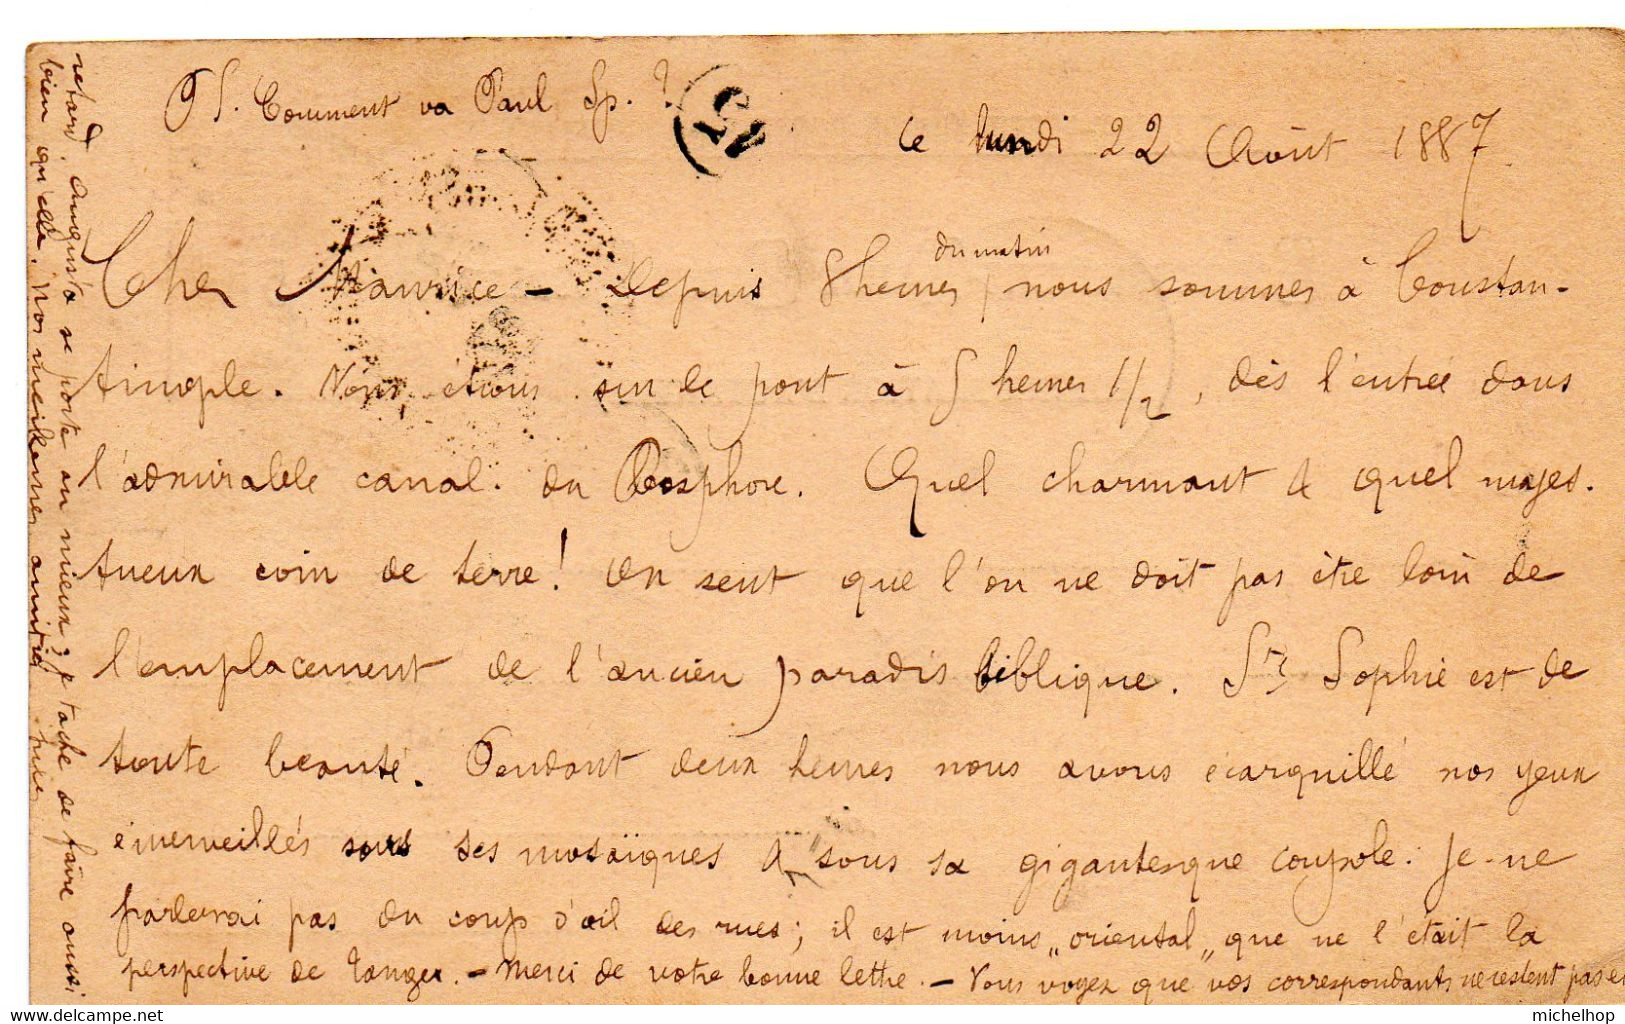 PS. Comment va Paul Sp. ?
15
Ce lundi 22 Août 1887
Cher Maurice — Depuis 8 heures du matin, nous sommes à Constan-
tinople. Nous étions sur le pont à 5 heures 1/2, dès l'entrée dans
l'admirable canal du Bosphore. Quel charmant & quel majes-
tueux coin de terre! On sent que l'on ne doit pas être loin de
l'emplacement de l'ancien paradis biblique. Ste Sophie est de
toute beauté. Pendant deux heures nous avons écarquillé nos yeux
émerveillés sous ses mosaïques & sous sa gigantesque coupole. Je ne
parlerai pas du coup d'œil des rues; il est moins „oriental„ que ne l'était la
perspective de Tanger. — Merci de votre bonne lettre. — Vous voyez que vos correspondants ne restent pas en
retard. Augusta se porte au mieux; je tâche de faire aussi
bien qu'elle. Nos meilleures amitiés
michelhop